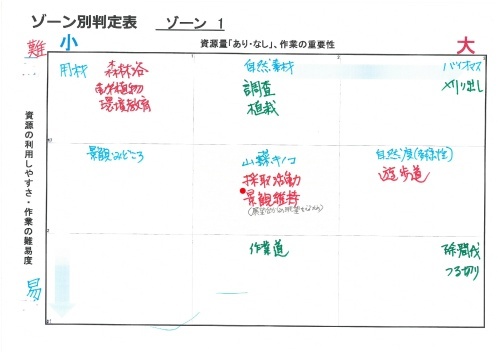 ゾーン別判定表 ゾーン 1
資源量「あり・なし」、作業の重要性
難 小 大
資源の利用しやすさ・作業の難易度
易
用材 森林浴
環境教育
自然素材
調査
植栽
バイオマス
刈り出し
景観みどころ
山菜キノコ
採取活動
景観維持
自然度(多様性)
遊歩道
作業道
除間伐
つる切り